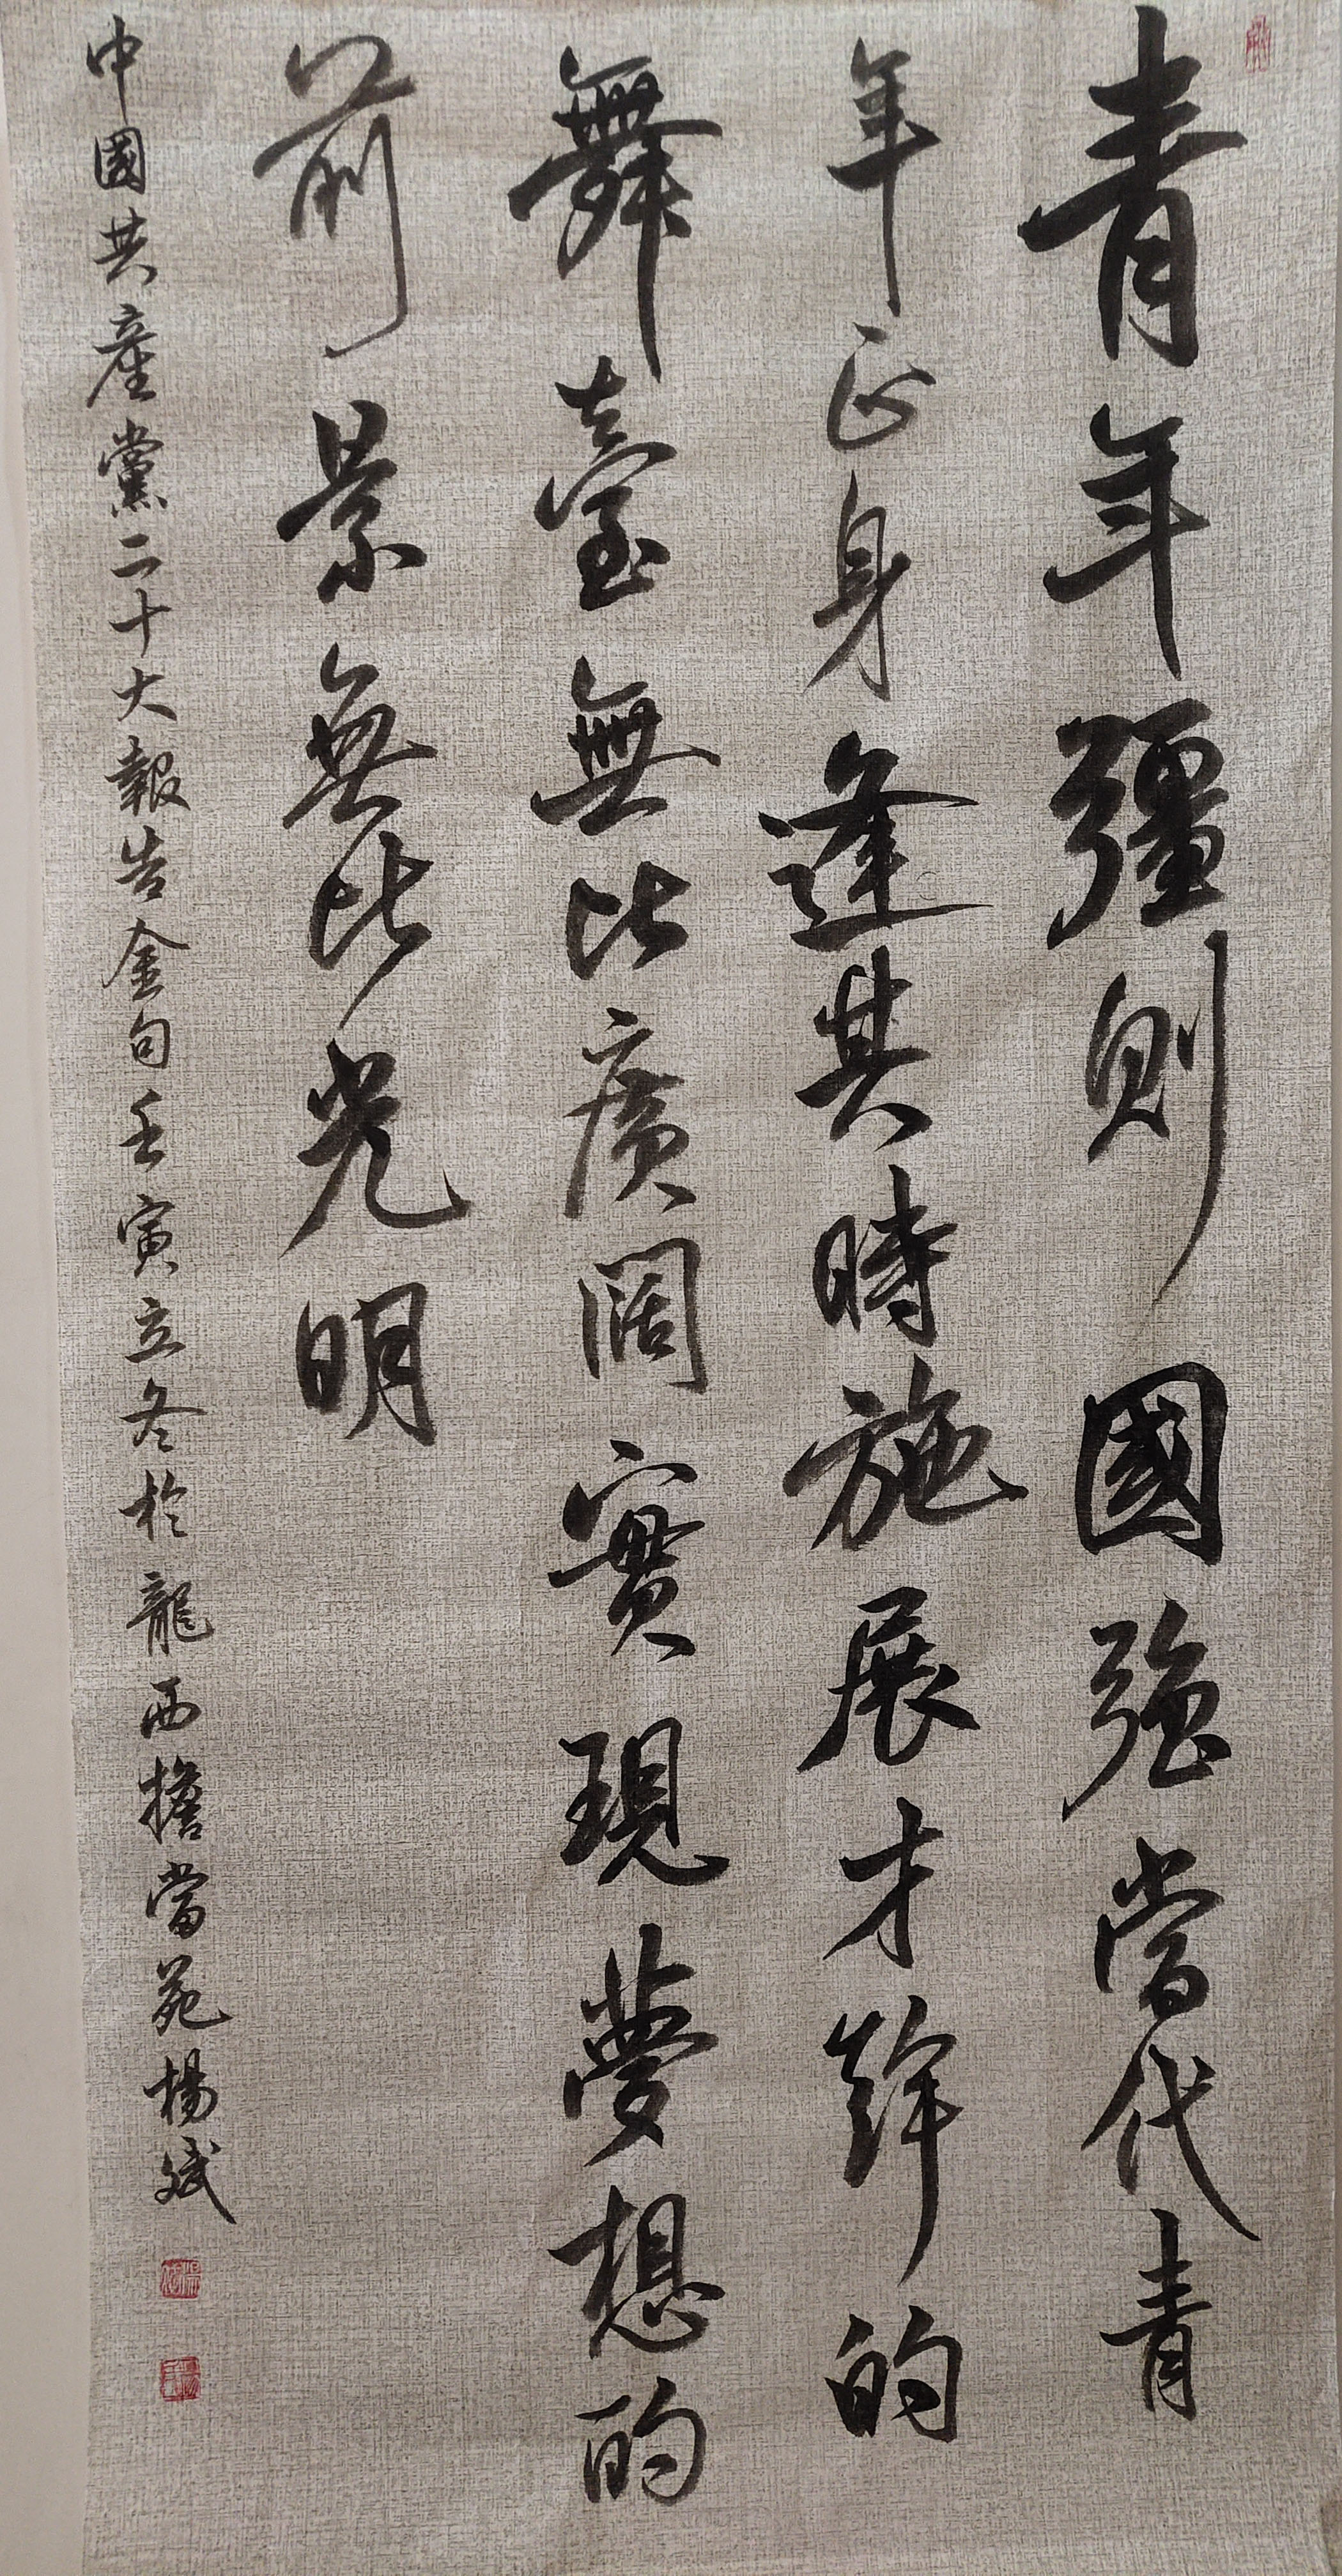 青年彊則國強當代青
年正身逢其時施展才幹的
舞臺無比廣闊實現夢想的
前景無比光明
中國共產黨二十大報告金句壬寅立冬於龍西擔當苑楊斌